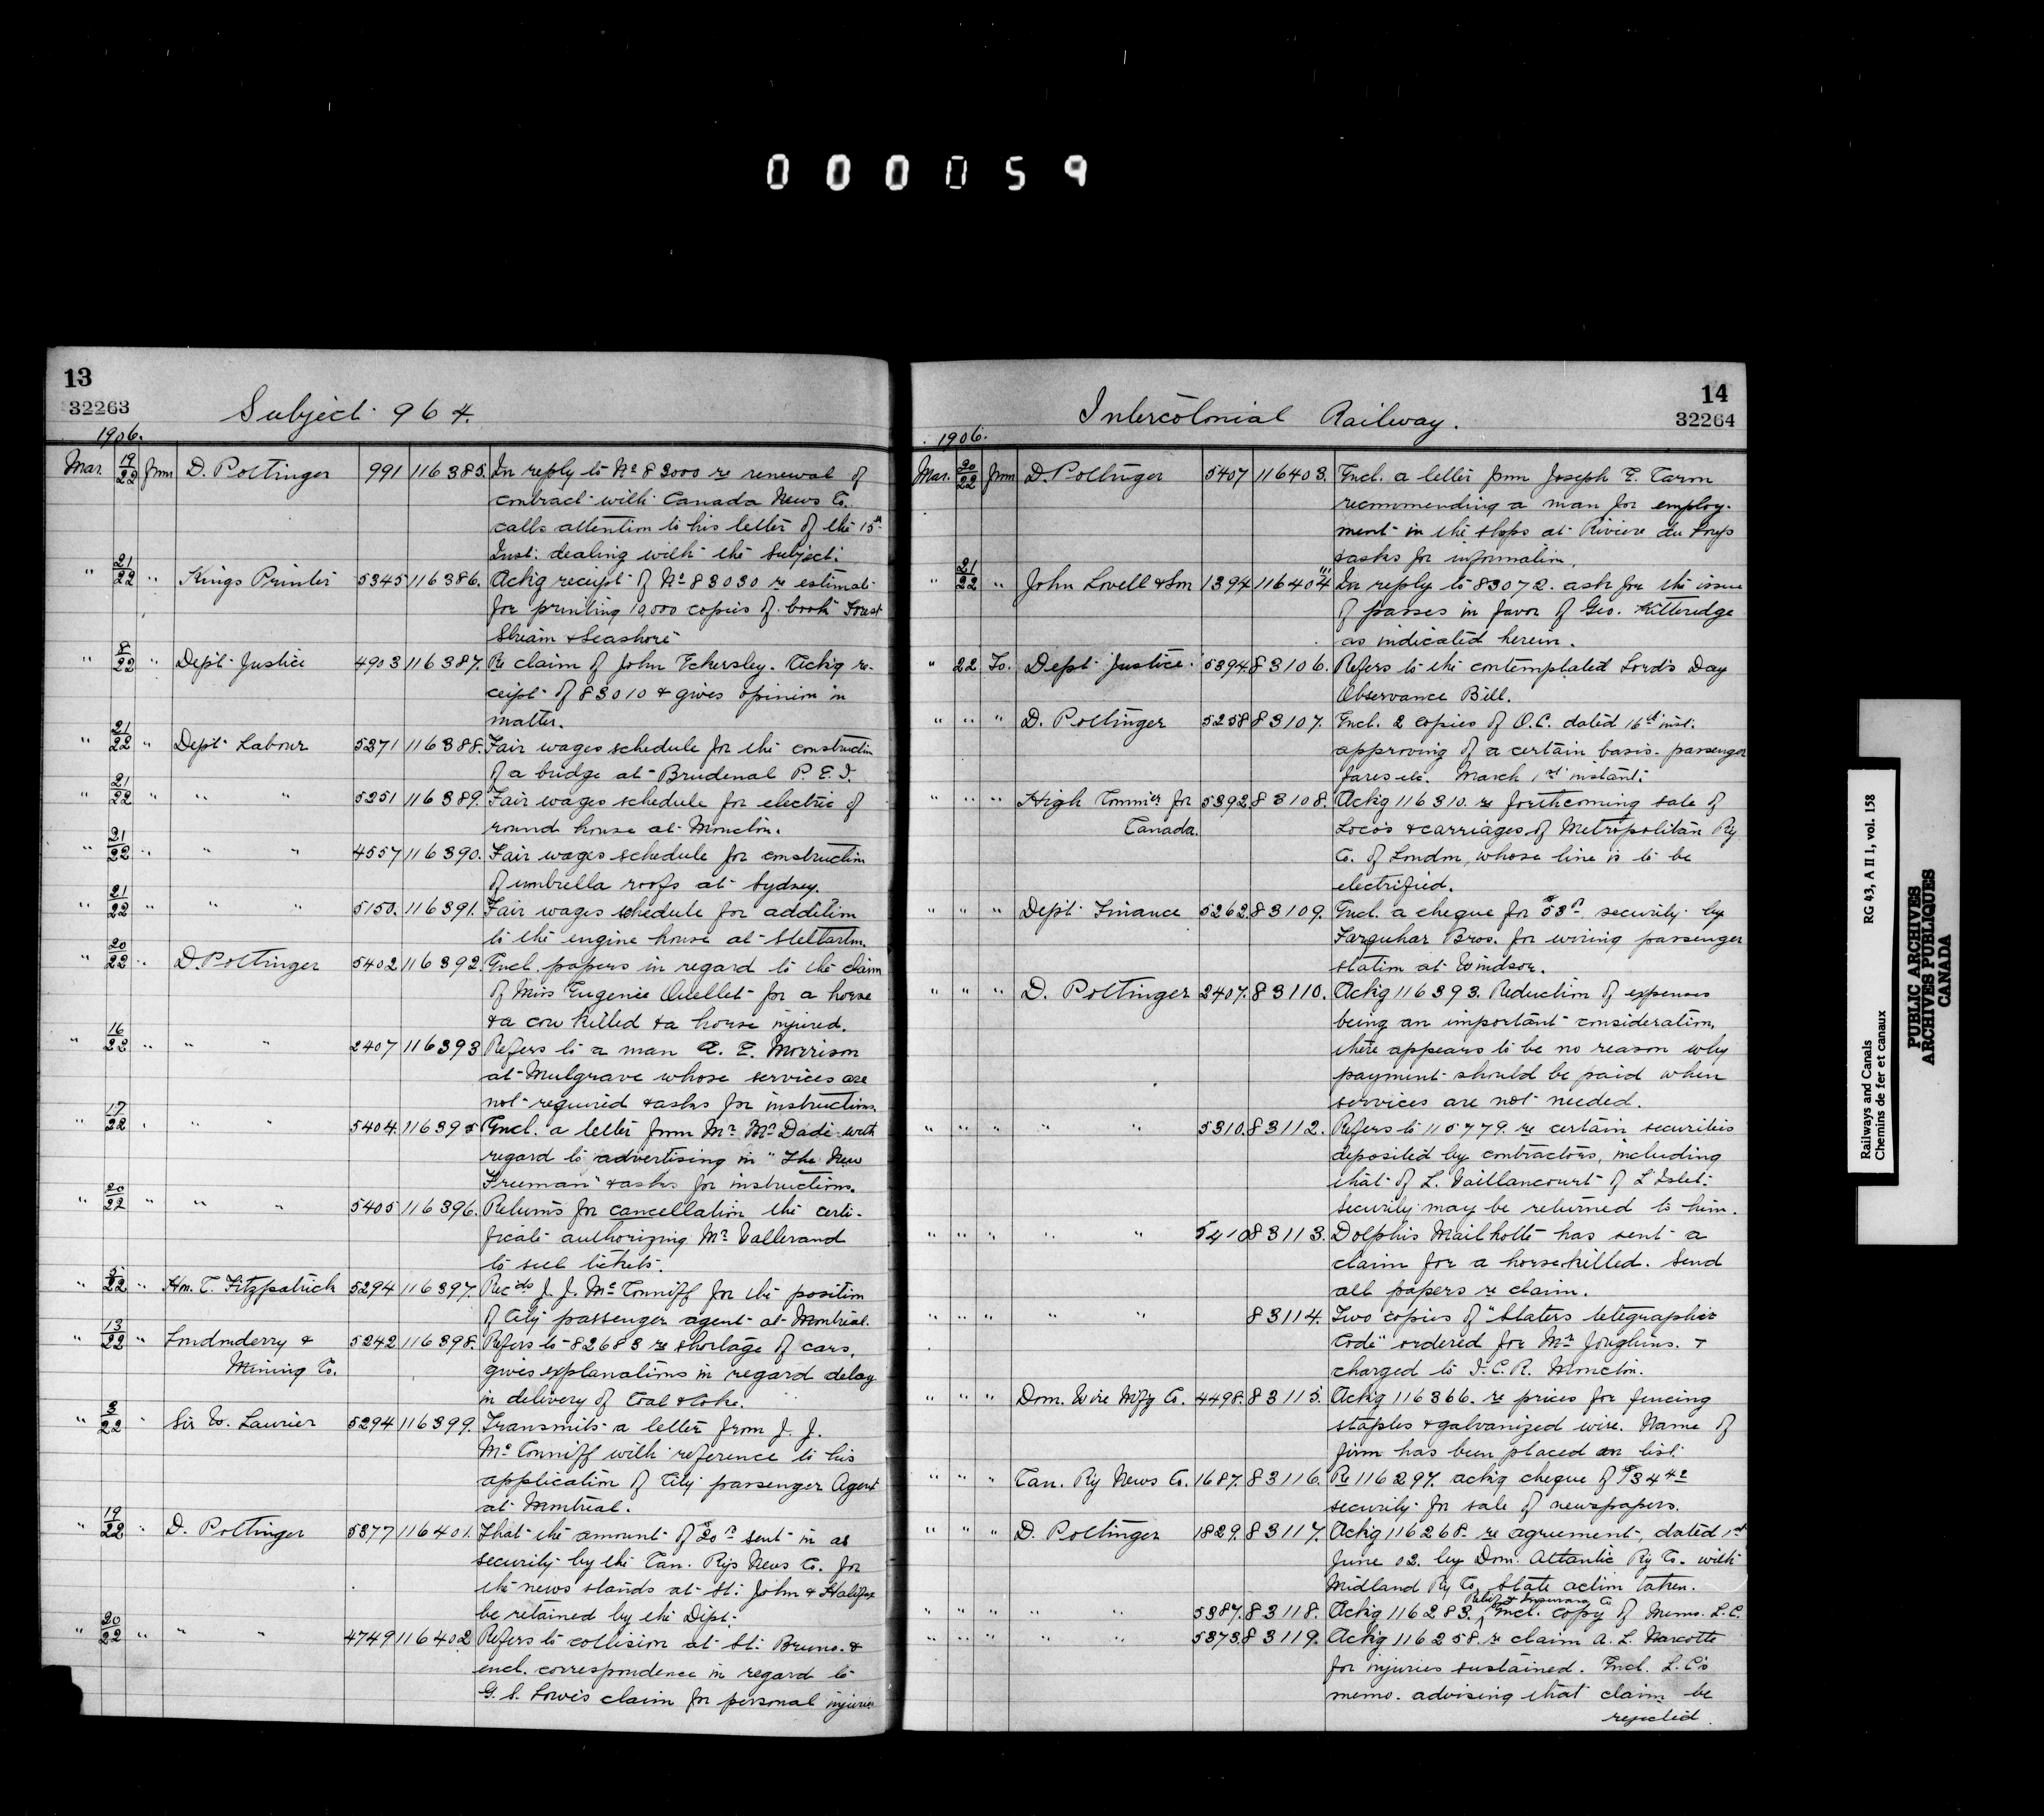 000059
13
32263
Subject 964.
1906.
Mar. 19/22 from D. Pottinger 991 116385. In reply to No 83000 re renewal of
contract with Canada News Co.
calls attention to his letter of the 15th
Inst. dealing with the Subject.
" 21/22 " Kings Printer 5345 116386. Ackg receipt of No 83030 re estimate
for printing 10,000 copies of book Forest
Stream & Seashore
" 8/22 " Dept Justice 4903 116387. Re claim of John Eckersley. Ackg re-
ceipt of 83010 & gives opinion in
matter.
" 21/22 " Dept Labour 5371 116388. Fair wages schedule for the construction
of a bridge at Brudenal P.E.I.
" 21/22 " " " 5251 116389. Fair wages schedule for electric of
round house at Moncton.
" 21/22 " " " 4557 116390. Fair wages schedule for construction
of umbrella roofs at Sydney.
" 21/22 " " " 5150. 116391. Fair wages schedule for addition
to the engine house at Stellarton.
" 20/22 " D. Pottinger 5402 116392. Encl. papers in regard to the claim
of Miss Eugenie Ouellet for a horse
& a cow killed & a horse injured.
" 16/22 " " " 2407 116393 Refers to a man A. E. Morrison
at Mulgrave whose services are
not required & asks for instructions.
" 17/22 " " " 5404. 116395 Encl. a letter from Mr McDade with
regard to advertising in "The New
Freeman" & asks for instructions.
" 20/22 " " " 5405 116396. Returns for cancellation the certi-
ficate authorizing Mr Vallerand
to sell tickets.
" 5/22 " Hon. C. Fitzpatrick 5294 116397. Recds J. J. McConniff for the position
of City passenger agent at Montreal.
" 13/22 " Londonderry & 5242 116398. Refers to 82683 re shortage of cars,
Mining Co. gives explanations in regard delay
in delivery of Coal & Coke.
" 3/22 " Sir W. Laurier 5294 116399. Transmits a letter from J. J.
McConniff with reference to his
application of City passenger Agent
at Montreal.
" 19/22 " D. Pottinger 5377 116401. That the amount of $20 sent in as
security by the Can. Rys News Co. for
the news stands at St. John & Halifax
be retained by the Dept.
" 20/22 " " " 4749 116402 Refers to collision at St. Bruno &
encl. correspondence in regard to
G. S. Lowe's claim for personal injuries
14
32264
Intercolonial Railway.
1906.
Mar. 20/22 from D. Pottinger 5407 116403. Encl. a letter from Joseph E. Caron
recommending a man for employ-
ment in the shops at Riviere du Loup
& asks for information.
" 21/22 " John Lovell & Son 1394 116404 In reply to 83072. ask for the issue
of passes in favor of Geo. Kitteridge
as indicated herein.
" 22 To. Dept Justice. 5394. 83106. Refers to the contemplated Lord's Day
Observance Bill.
" " " D. Pottinger 5258 83107. Encl. 2 copies of O.C. dated 16th inst.
approving of a certain basis - passenger
fares etc. March 1st instant.
" " " High Commr for 5392 83108. Ackg 116310. re forthcoming sale of
Canada. Loco's & carriages of Metropolitan Ry
Co. of London, whose line is to be
electrified.
" " " Dept Finance 5262. 83109. Encl. a cheque for $53 security by
Farquhar Bros. for wiring passenger
station at Windsor.
" " " D. Pottinger 2407. 83110. Ackg 116393. Reduction of expenses
being an important consideration,
there appears to be no reason why
payment should be paid when
services are not needed.
" " " " " 5310. 83112. Refers to 115779. re certain securities
deposited by contractors, including
that of L. Vaillancourt of L'Islet.
security may be returned to him.
" " " " " 5410 83113. Dolphis Mailhotte has sent a
claim for a horse killed. Send
all papers re claim.
" " " " " 83114. Two copies of "Slaters telegraphic
Code" ordered for Mr Joughins. &
charged to I.C.R. Moncton.
" " " Dom. Wire Mfg Co. 4498. 83115. Ackg 116366. re prices for fencing
staples & galvanized wire. Name of
firm has been placed on list.
" " " Can. Ry News Co. 1687. 83116. Re 116297. ackg cheque of $34.42
security for sale of newspapers.
" " " D. Pottinger 1829. 83117. Ackg 116268. re agreement, dated 1st
June 02. by Dom. Atlantic Ry Co. with
Midland Ry Co. State action taken.
" " " " " 5387. 83118. Ackg 116283. Relief & Insurance Co Encl. copy of Memo. L.C.
" " " " " 5373. 83119. Ackg 116258. re claim A. L. Marcotte
for injuries sustained. Encl. L.C's
memo. advising that claim be
rejected.
Railways and Canals RG 43, A II 1, vol. 158
Chemins de fer et canaux
PUBLIC ARCHIVES
ARCHIVES PUBLIQUES
CANADA